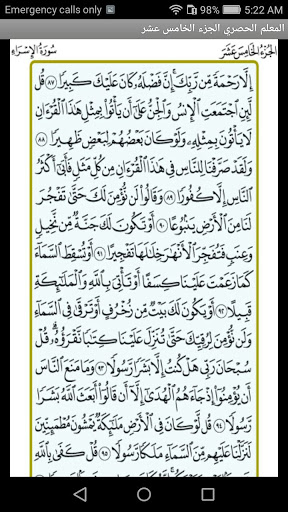 Emergency calls only 5:22 AM
المعلم الحصري الجزء الخامس عشر
الجزء الخامس عشر سورة الإسراء
إِلَّا رَحْمَةً مِّن رَّبِّكَ إِنَّ فَضْلَهُ كَانَ عَلَيْكَ كَبِيرًا ٨٧ قُل
لَّئِنِ اجْتَمَعَتِ الْإِنسُ وَالْجِنُّ عَلَىٰ أَن يَأْتُوا بِمِثْلِ هَٰذَا الْقُرْءَانِ
لَا يَأْتُونَ بِمِثْلِهِ وَلَوْ كَانَ بَعْضُهُمْ لِبَعْضٍ ظَهِيرًا ٨٨
وَلَقَدْ صَرَّفْنَا لِلنَّاسِ فِي هَٰذَا الْقُرْءَانِ مِن كُلِّ مَثَلٍ فَأَبَىٰ أَكْثَرُ
النَّاسِ إِلَّا كُفُورًا ٨٩ وَقَالُوا لَن نُّؤْمِنَ لَكَ حَتَّىٰ تَفْجُرَ
لَنَا مِنَ الْأَرْضِ يَنبُوعًا ٩٠ أَوْ تَكُونَ لَكَ جَنَّةٌ مِّن نَّخِيلٍ
وَعِنَبٍ فَتُفَجِّرَ الْأَنْهَارَ خِلَالَهَا تَفْجِيرًا ٩١ أَوْ تُسْقِطَ السَّمَاءَ
كَمَا زَعَمْتَ عَلَيْنَا كِسَفًا أَوْ تَأْتِيَ بِاللَّهِ وَالْمَلَائِكَةِ
قَبِيلًا ٩٢ أَوْ يَكُونَ لَكَ بَيْتٌ مِّن زُخْرُفٍ أَوْ تَرْقَىٰ فِي السَّمَاءِ
وَلَن نُّؤْمِنَ لِرُقِيِّكَ حَتَّىٰ تُنَزِّلَ عَلَيْنَا كِتَابًا نَّقْرَؤُهُ قُلْ
سُبْحَانَ رَبِّي هَلْ كُنتُ إِلَّا بَشَرًا رَّسُولًا ٩٣ وَمَا مَنَعَ النَّاسَ
أَن يُؤْمِنُوا إِذْ جَاءَهُمُ الْهُدَىٰ إِلَّا أَن قَالُوا أَبَعَثَ اللَّهُ بَشَرًا
رَّسُولًا ٩٤ قُل لَّوْ كَانَ فِي الْأَرْضِ مَلَائِكَةٌ يَمْشُونَ مُطْمَئِنِّينَ
لَنَزَّلْنَا عَلَيْهِم مِّنَ السَّمَاءِ مَلَكًا رَّسُولًا ٩٥ قُلْ كَفَىٰ بِاللَّهِ